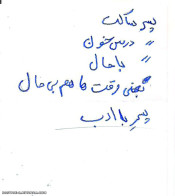 پسر ساکت
〃 درس خون
〃 باحال
بعضی وقت ها هم بی حال
پسر با ادب